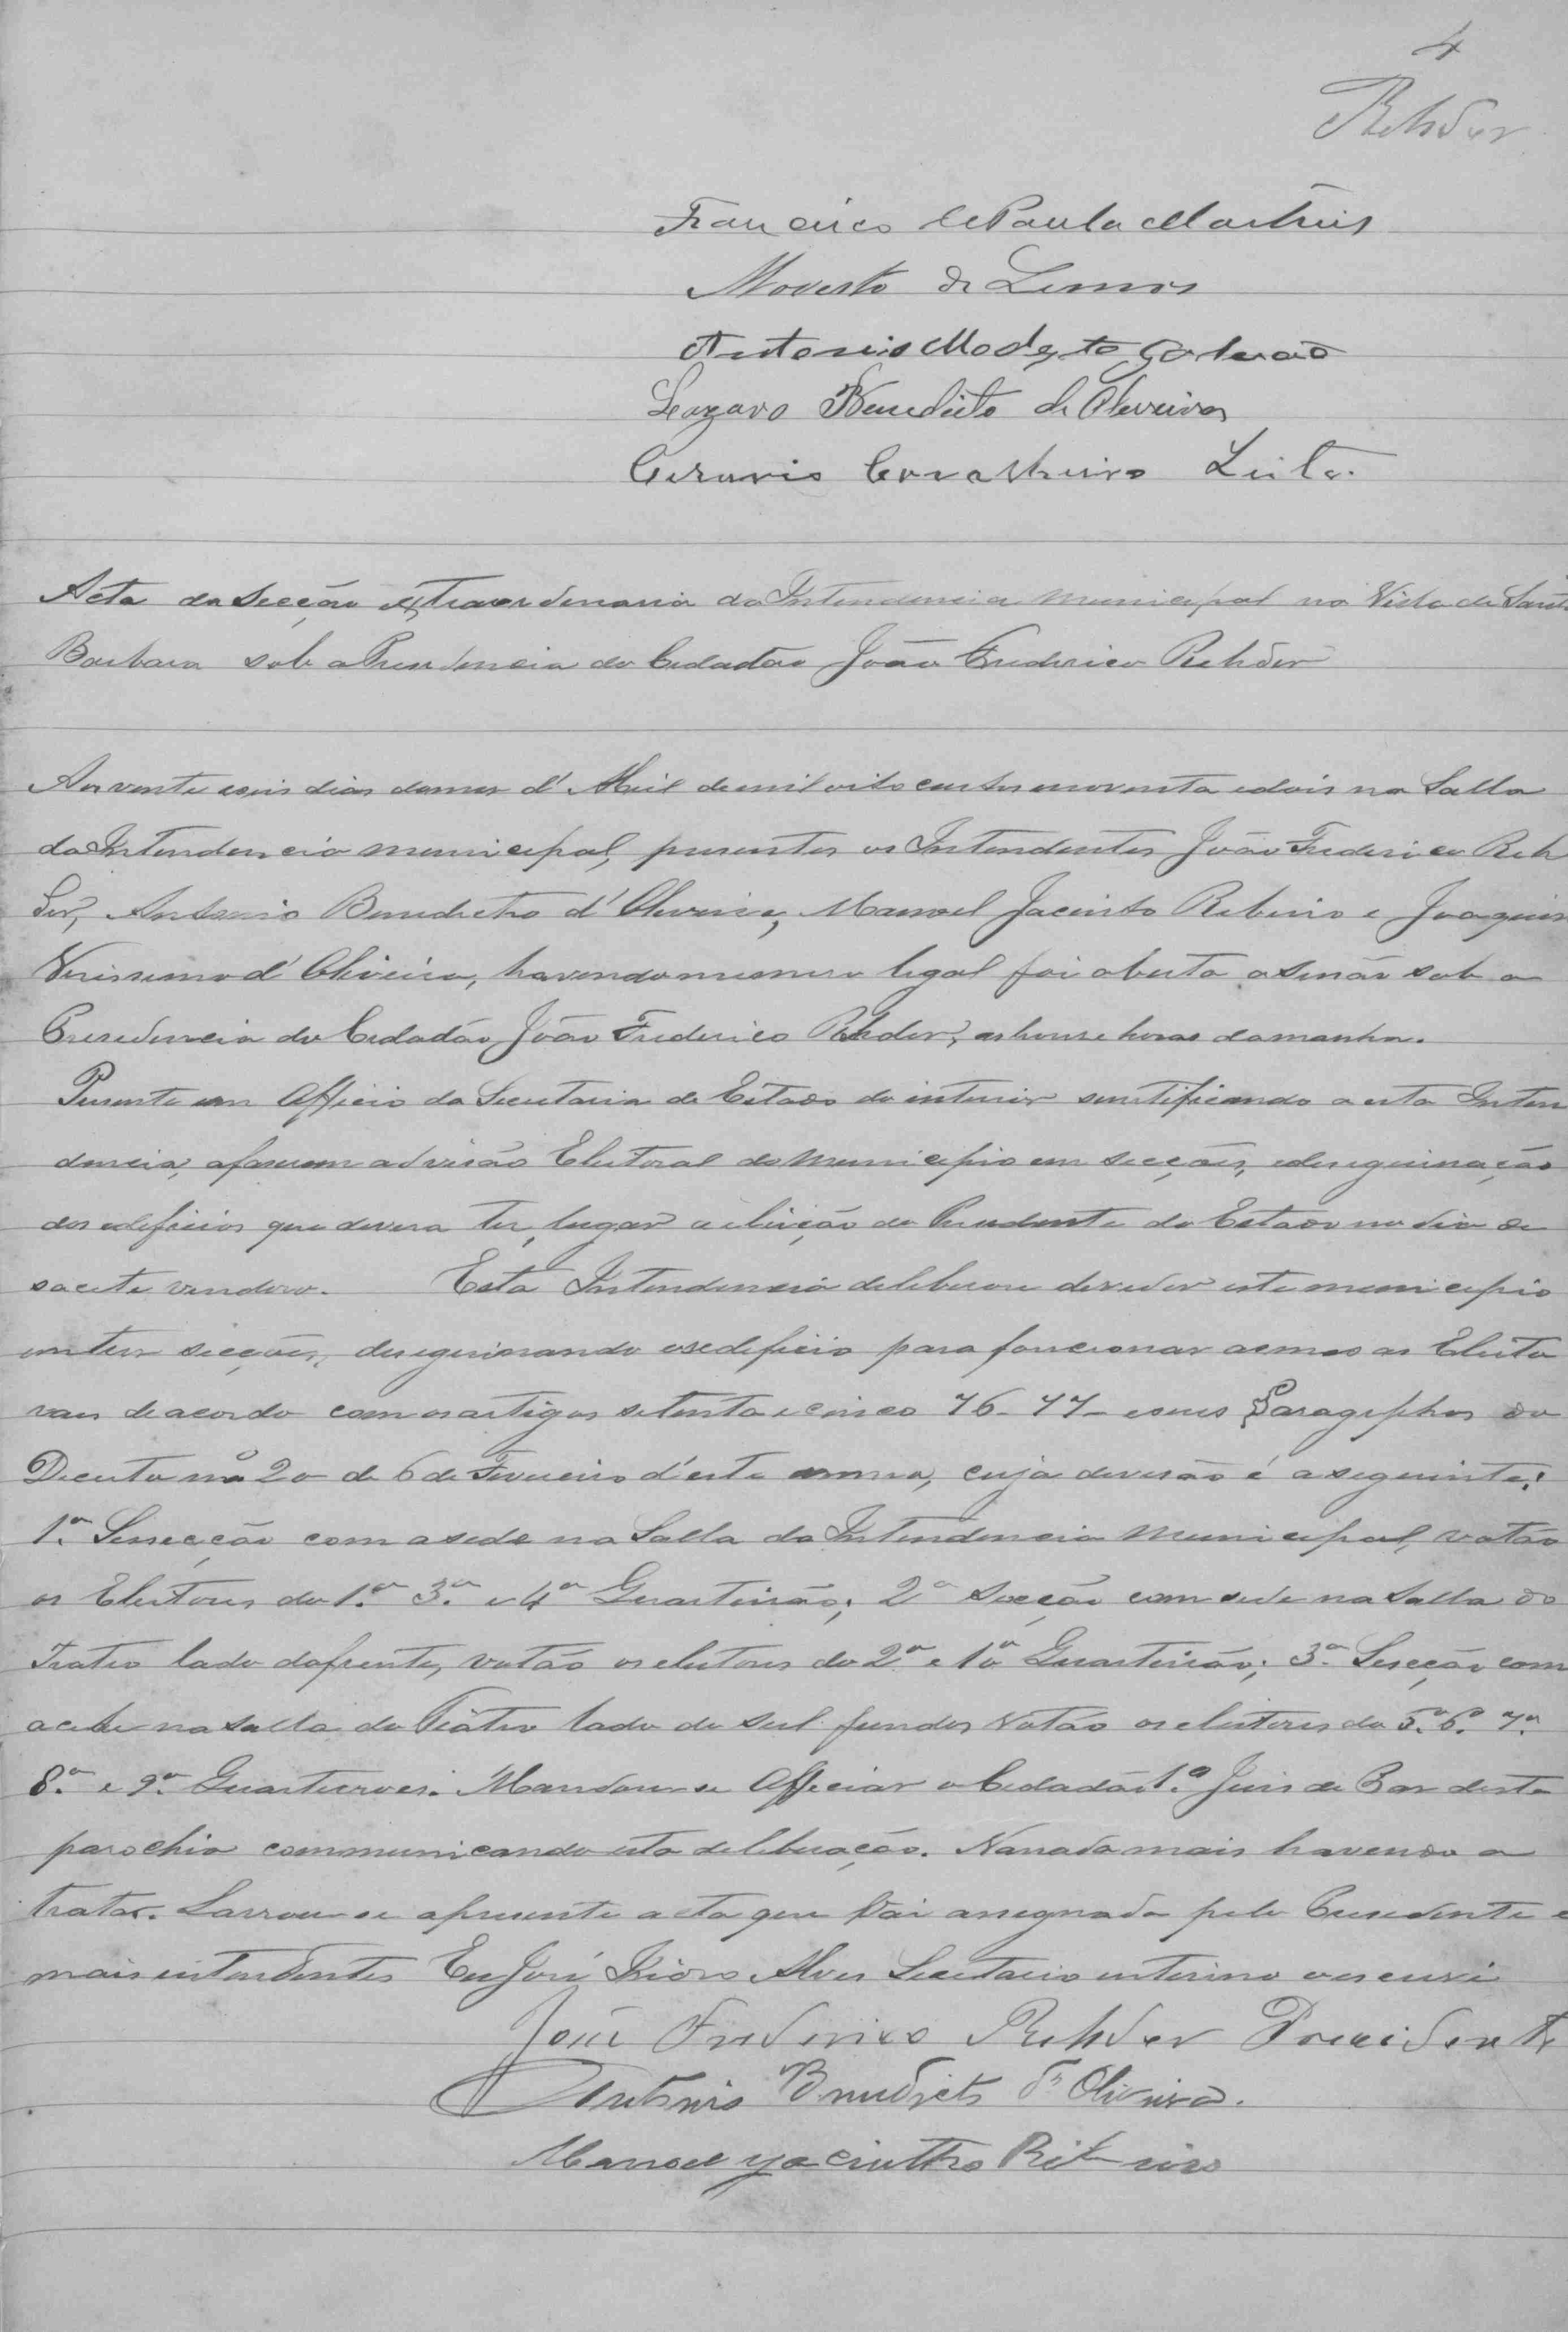 4
Rehder
Francisco de Paula Martins
Modesto de Lemos
Antonio Modesto Galvão
Lazaro Benedicto de Oliveira
Cezario Cavalheiro Leite.
Acta da Secção extraordenaria da Intendencia Municipal na Villa de Santa
Barbara sob a Presidencia do Cidadão João Frederico Rehder
Aos vente e seis dias do mes d'Abril de mil oito centos e noventa e dois na Salla
da Intendencia municipal, presentes os Intendentes João Frederico Reh
der, Antonio Benedicto d'Oliveira, Manoel Jacinto Ribeiro e Joaquim
Verissimo d'Oliveira, havendo numero legal foi aberta a sessão sob a
Presedencia do Cidadão João Frederico Rehder, as honze horas da manha.
Presente um Officio da Secretaria de Estado do interior a esta Inten
dencia, afazerem a devisão Eleitoral do Municipio em secções,
dos edeficios que devera ter lugar a eleição de Presidente do Estado no dia
Esta Intendencia deliberou devedir este municipio
em tres secções, os edeficio para foncionar as mesas Eleito
raes de acordo com os artigos setenta e cinco 76- 77- e seus Paragrphos do
Decreto nº 20 de 6 de Fevereiro d'este anno, cuja devesão é a seguinte:
1ª Sesecção com a sede na Salla da Intendencia Municipal, votão
os Eleitores do 1º 3º e 4º Quarteirão; 2ª Secção com sede na Salla do
Teatro lado da frente, votão os eleitores do 2º e 10 Quarteirão; 3ª Sesecção com
a cede na Salla do Teatro lado do sul fundos votão os eleitores do 5º 6º 7º
8º e 9º Quarteiroes. Mandou-se Officiar o Cedadão 1º Juis de Paz desta
parochia communicando esta deliberação. Nanada mais havendo a
tratar. Lavrou-se apresente acta que vai assegnada pelo Presedente e
mais intendentes Eu José Isidro Alves Secretario interino o escrevi
João Frederico Rehder Presidente
Antonio Benedicto de Oliveira.
Manoel Yacinttho Ribeiro